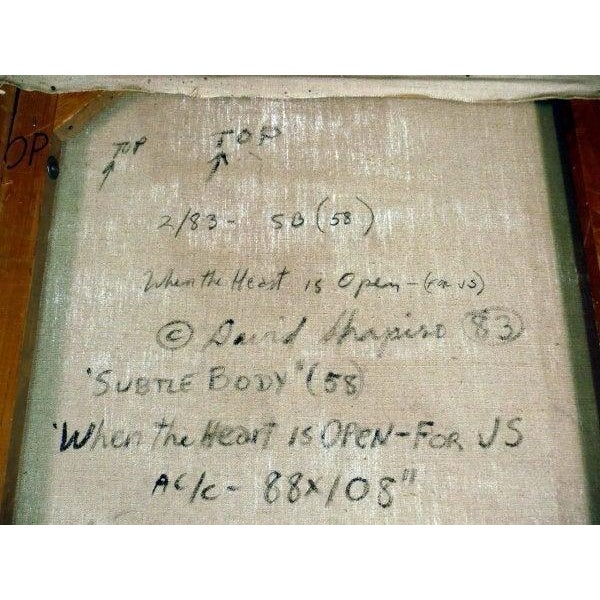 OP
TOP TOP
2/83- SB (58)
When the Heart is Open-(For JS)
© David Shapiro (83)
"SUBTLE BODY" (58)
"When the Heart is OPEN-FOR JS
AC/C- 88X108"